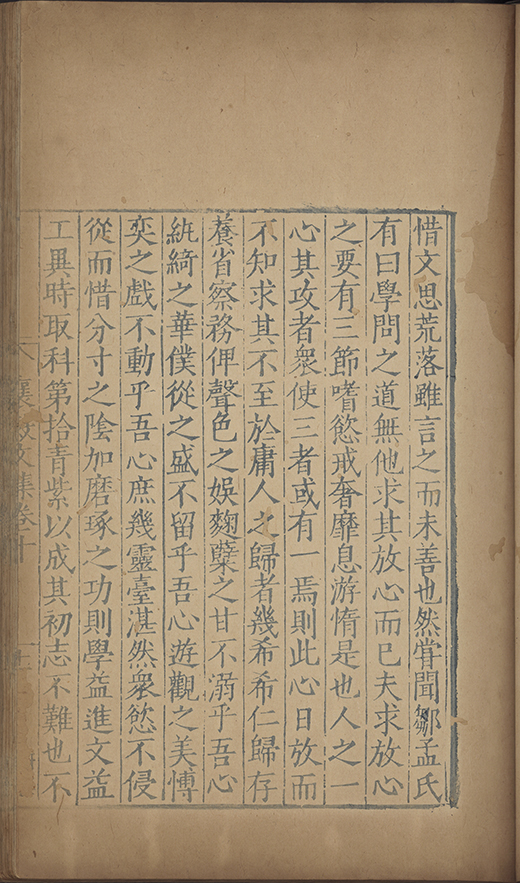 惜文思荒落雖言之而未善也然甞聞鄒孟氏
有曰學問之道無他求其放心而已夫求放心
之要有三節嗜慾戒奢靡息游惰是也人之一
心其攻者衆使三者或有一焉則此心日放而
不知求其不至於庸人之歸者幾希希仁歸存
養省察務俾聲色之娛麴糵之甘不溺乎吾心
紈綺之華僕從之盛不留乎吾心遊觀之美愽
奕之戲不動乎吾心庶幾靈臺湛然衆慾不侵
從而惜分寸之陰加磨琢之功則學益進文益
工異時取科第拾青紫以成其初志不難也不
襄毅文集卷十